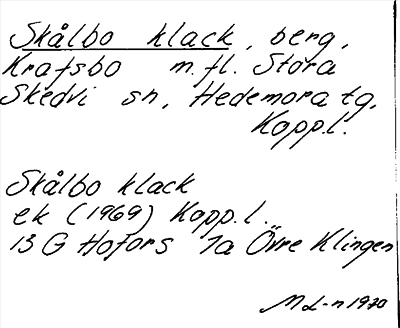 Skålbo klack, berg,
Krafsbo m.fl. Stora
Skedvi sn, Hedemora tg,
Kopp.l.
Skålbo klack
ek (1969) Kopp.l.
13 G Hofors 7a Övre Klingen
ML-n 1970